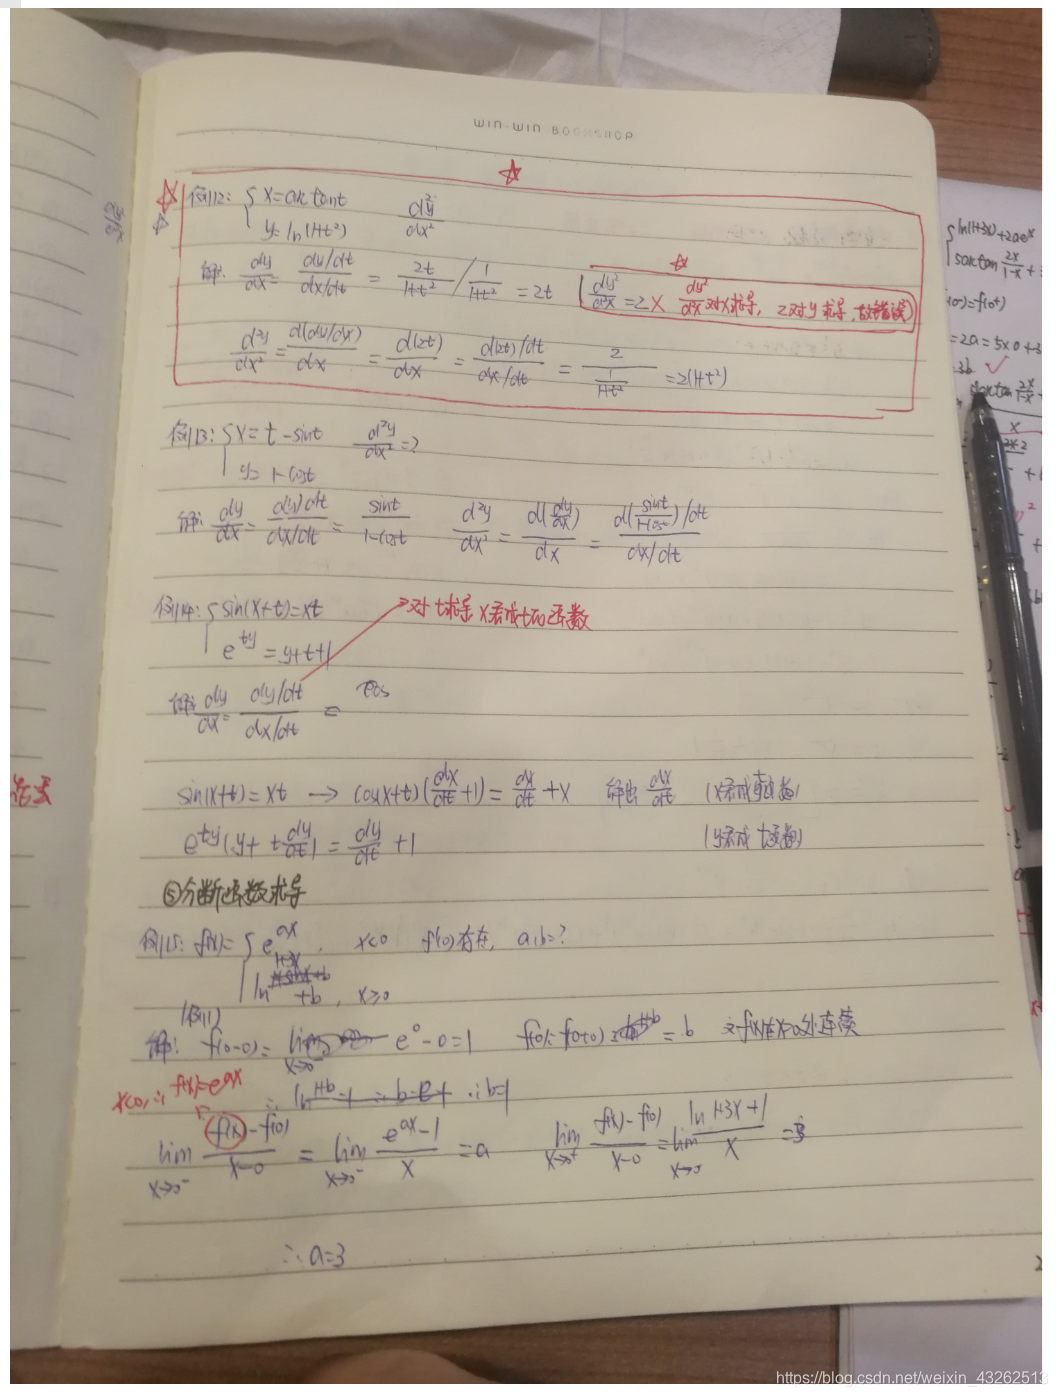 WIN-WIN BOOKSHOP
例12: { x=arc tant  d²y/dx²
y=ln(1+t²)
解: dy/dx = (dy/dt)/(dx/dt) = 2t/(1+t²) / 1/(1+t²) = 2t
dy²/d²x = 2 × dy²/d²x 对x求导, 2对y求导, 故错误
d²y/dx² = d(dy/dx)/dx = d(2t)/dx = (d(2t)/dt)/(dx/dt) = 2/(1/(1+t²)) = 2(1+t²)
例13: { x=t-sint  d²y/dx²=?
y=1-cost
解: dy/dx = (dy/dt)/(dx/dt) = sint/(1-cost)  d²y/dx² = d(dy/dx)/dx = (d(sint/(1-cost))/dt)/(dx/dt)
例14: { sin(x+t)=xt
→对t求导 x看成t的函数
e^ty = y+t+1
解: dy/dx = (dy/dt)/(dx/dt) =
sin(x+t)=xt → cos(x+t)(dx/dt+1)=dx/dt+x 解出 dx/dt (x看成t函数)
e^ty(y+t dy/dt) = dy/dt+1 (y看成t函数)
⑤分断函数求导
例15: f(x)= { e^ax, x<0 f'(0)存在, a,b=?
ln^1+3x +b, x≥0
(例11)
解: f(0-0)= lim x→0⁻ e⁰-0=1 f(0)=f(0+0)= =b 又f(x)在x=0处连续
x<0, ∴f(x)=e^ax
∴ ln^1+b=1 ∴b=e-1 ∴b=1
lim x→0⁻ (f(x)-f(0))/(x-0) = lim x→0⁻ (e^ax-1)/x = a  lim x→0⁺ (f(x)-f(0))/(x-0) = lim x→0 (ln 1+3x+1)/x = 3
∴a=3
ln(1+3x)+2ae^x
=2a=5×0+3
https://blog.csdn.net/weixin_43262513